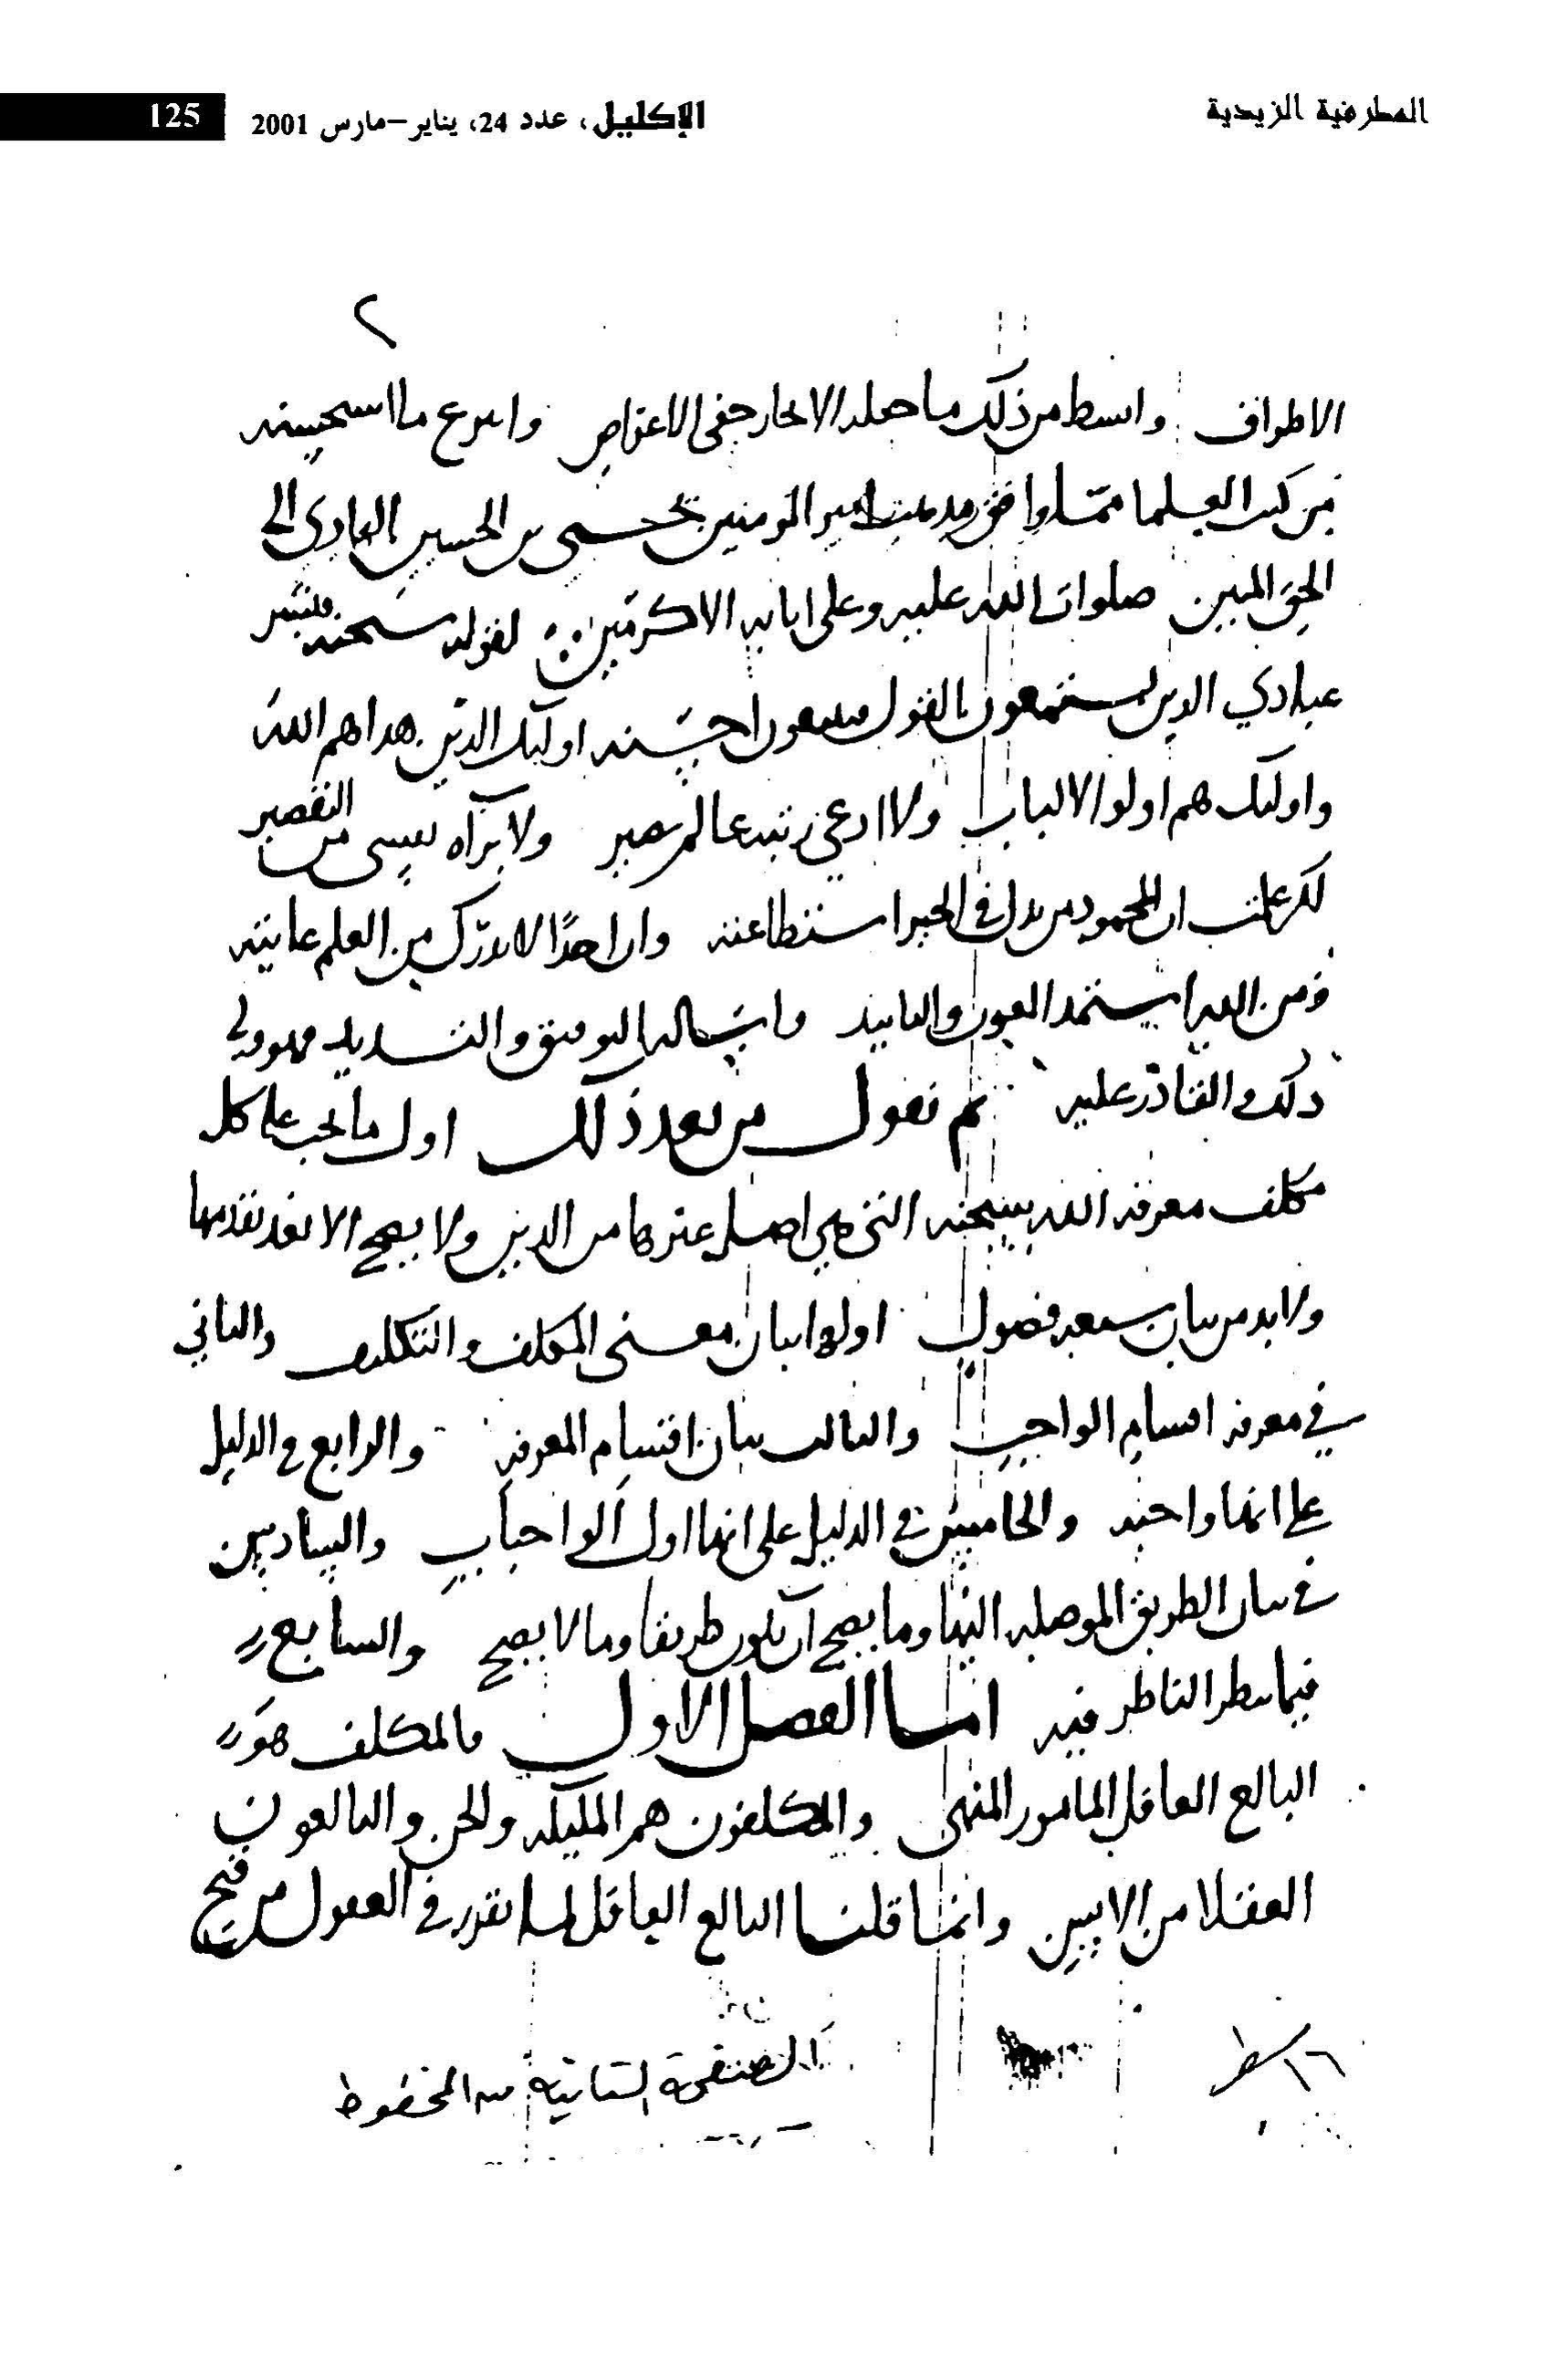 المطرفية الزيدية
الإكليل، عدد 24، يناير-مارس 2001
125
٢
الاطراف وابسط من ذلك ما جعله الاىحار حفى الاعتراض وانىرع ما استحسنته
من كتب العلما مما وافق مدهب امير المومنين يحيى بن الحسين الهادي الى
الحق المبين صلوات الله عليه وعلى ابايه الاكرمين لقوله سبحنه فبشر
عبادي الدين يستمعون القول فيتبعون احسنه اوليك الذين هداهم الله
واوليك هم اولوا الالباب ولا ادعي رتبة عالم بصير ولا براه نفسى من التقصير
لكن علمت ان المحمود من بدل في الخير استطاعته وان احدًا لا يدرك من العلم غايته
ومن الله استمد العون والتاييد واساله التوفيق والتسديد فهو ولي
ذلك والقادر عليه ثم نقول من بعد ذلك اول ما يجب على كل
مكلف معرفة الله سبحنه التي هي اصل غيرها من الدين ولا يصح الا بعد تقدمها
ولا بد من بيان سبعة فصول اولها بيان معنى المكلف والتكليف والثاني
في معرفة اقسام الواجب والثالث بيان اقسام المعرفة والرابع في الدليل
على انها واجبة والخامس في الدليل على انها اول الواجبات والسادس
في بيان الطريق الموصلة اليها وما يصح ان يكون طريقا وما لا يصح والسابع
فيما ينظر الناظر فيه اما الفصل الاول فالمكلف هو
البالغ العاقل المامور المنهى والمكلفون هم المليكة والجن والبالغون
العقلا من الانس وانما قلنا البالغ العاقل لما تقرر في العقول من قبح
١٦ سطر
الصفحة الثانية من المخطوط